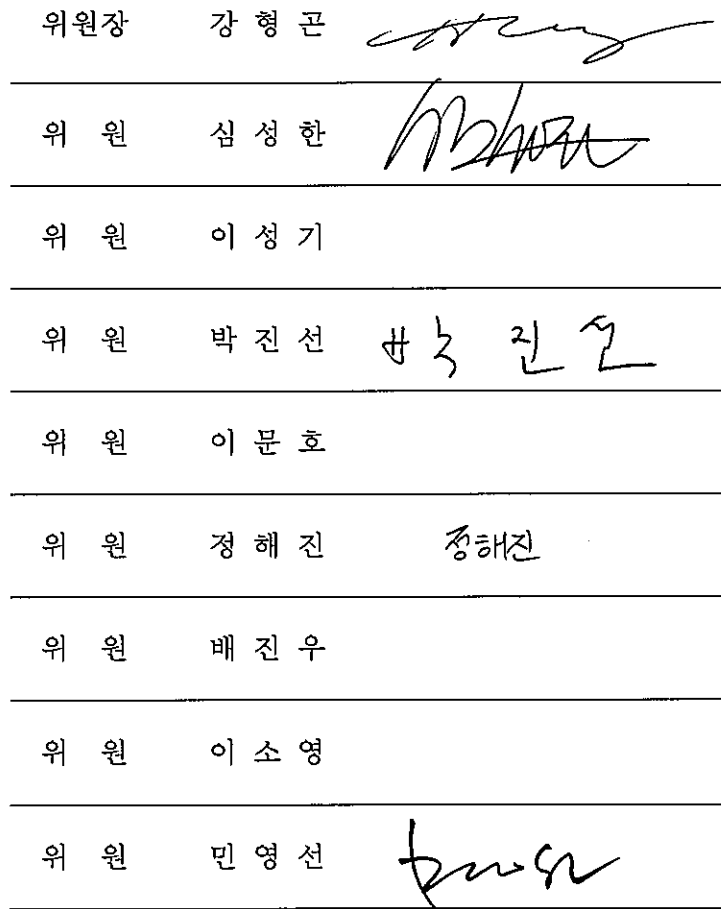 위원장 강 형 곤
위 원 심 성 한
위 원 이 성 기
위 원 박 진 선 박 진 선
위 원 이 문 호
위 원 정 해 진 정해진
위 원 배 진 우
위 원 이 소 영
위 원 민 영 선